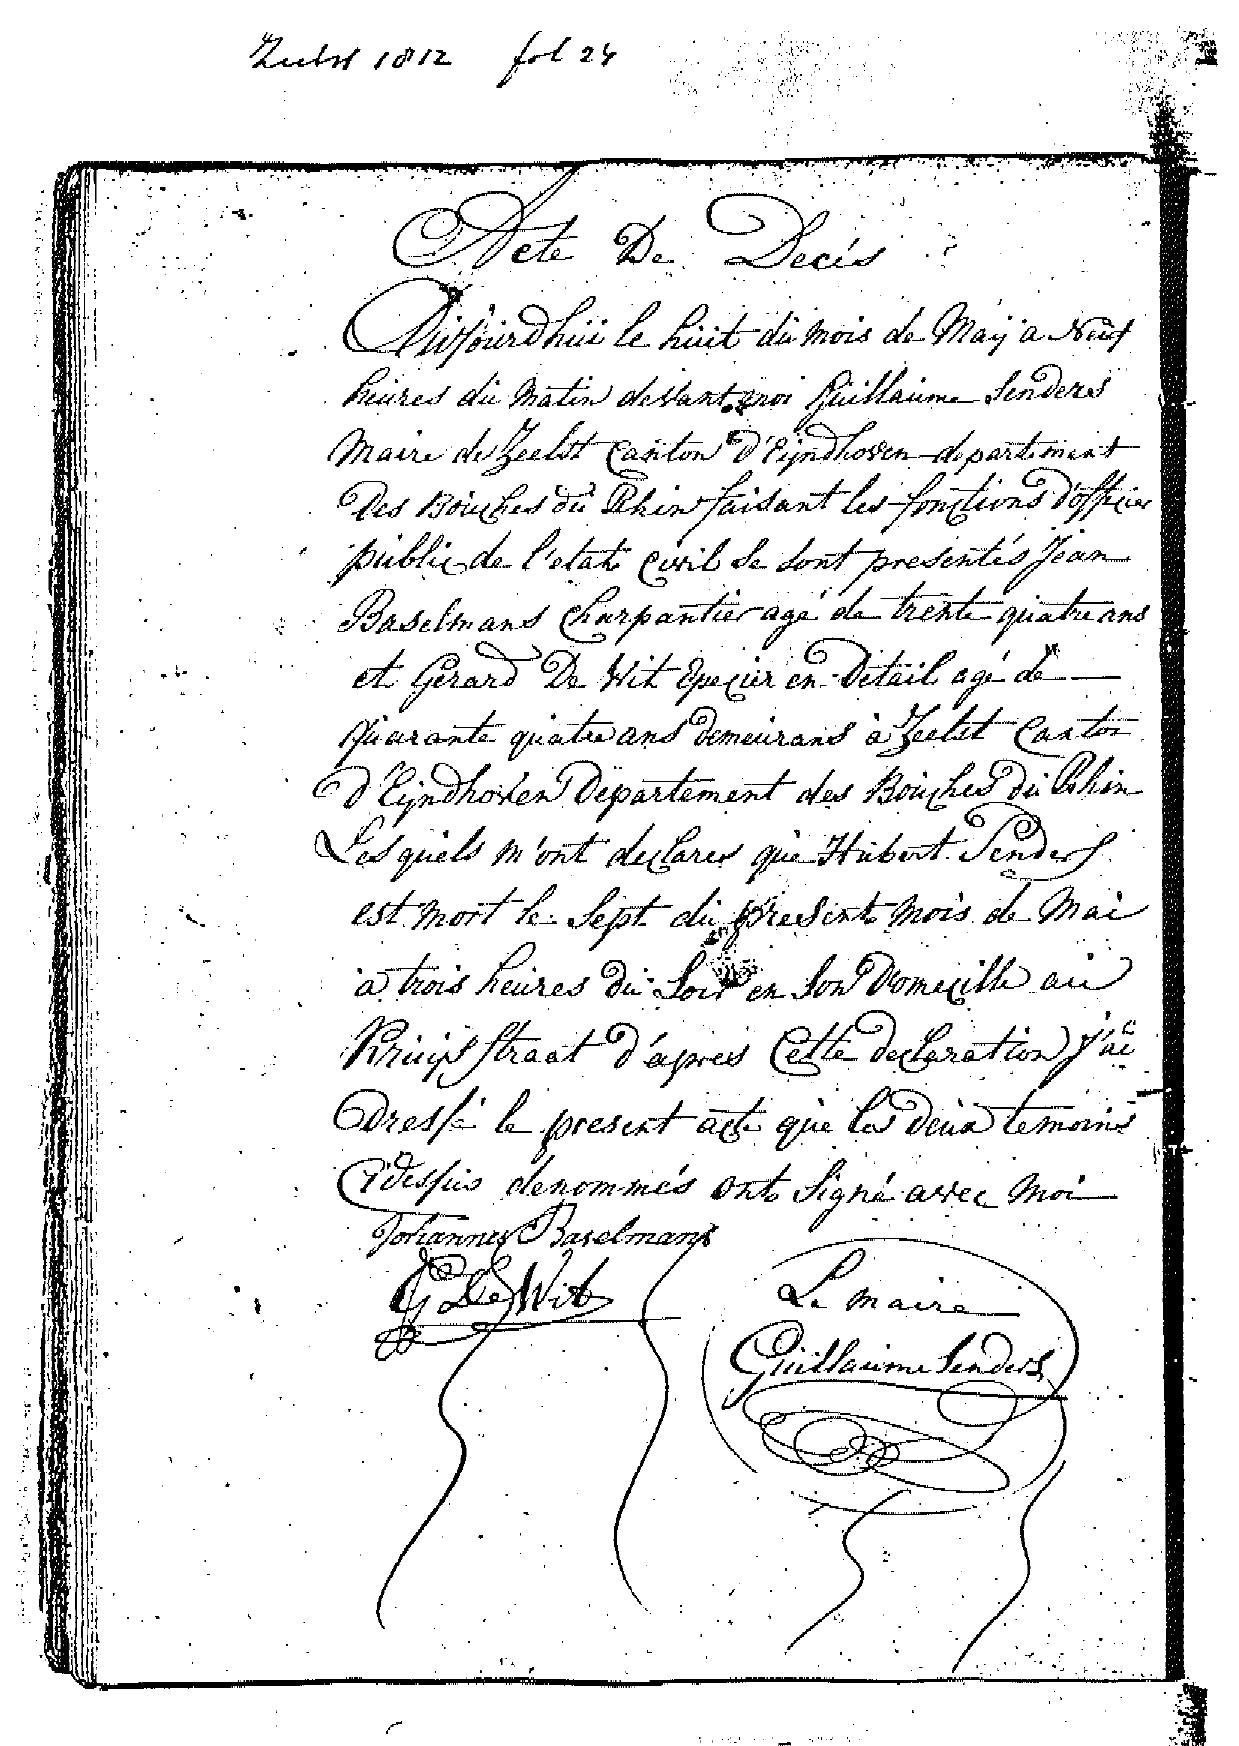 Zeelst 1812 fol 24
Acte De Decés
Aujourdhui le huit du mois de Maÿ a Neuf
heures du Matin devant moi Guillaume Senders
Maire de Zeelst Canton d'Eÿndhoven departement
Des Bouches du Rhin faisant les fonctions d'officier
public de l'etat Civil se sont presentés Jean
Baselmans Charpantier agé de trente quatre ans
et Gerard De Wit Epecier en Detail agé de
Quarante quatre ans demeurans à Zeelst Canton
d'Eÿndhoven Departement des Bouches du Rhin
Les quels m'ont declarer que Hubert Senders
est mort le Sept du present Mois de Mai
à trois heures du Soir en Son Domecille au
Kruijsstraat d'aprés Cette declaration J'ai
Dressé le present acte que les deux temoins
Cidessus denommés ont Signé avec Moi
Johannes Baselmans
G De Wit
Le Maire
Guillaume Senders